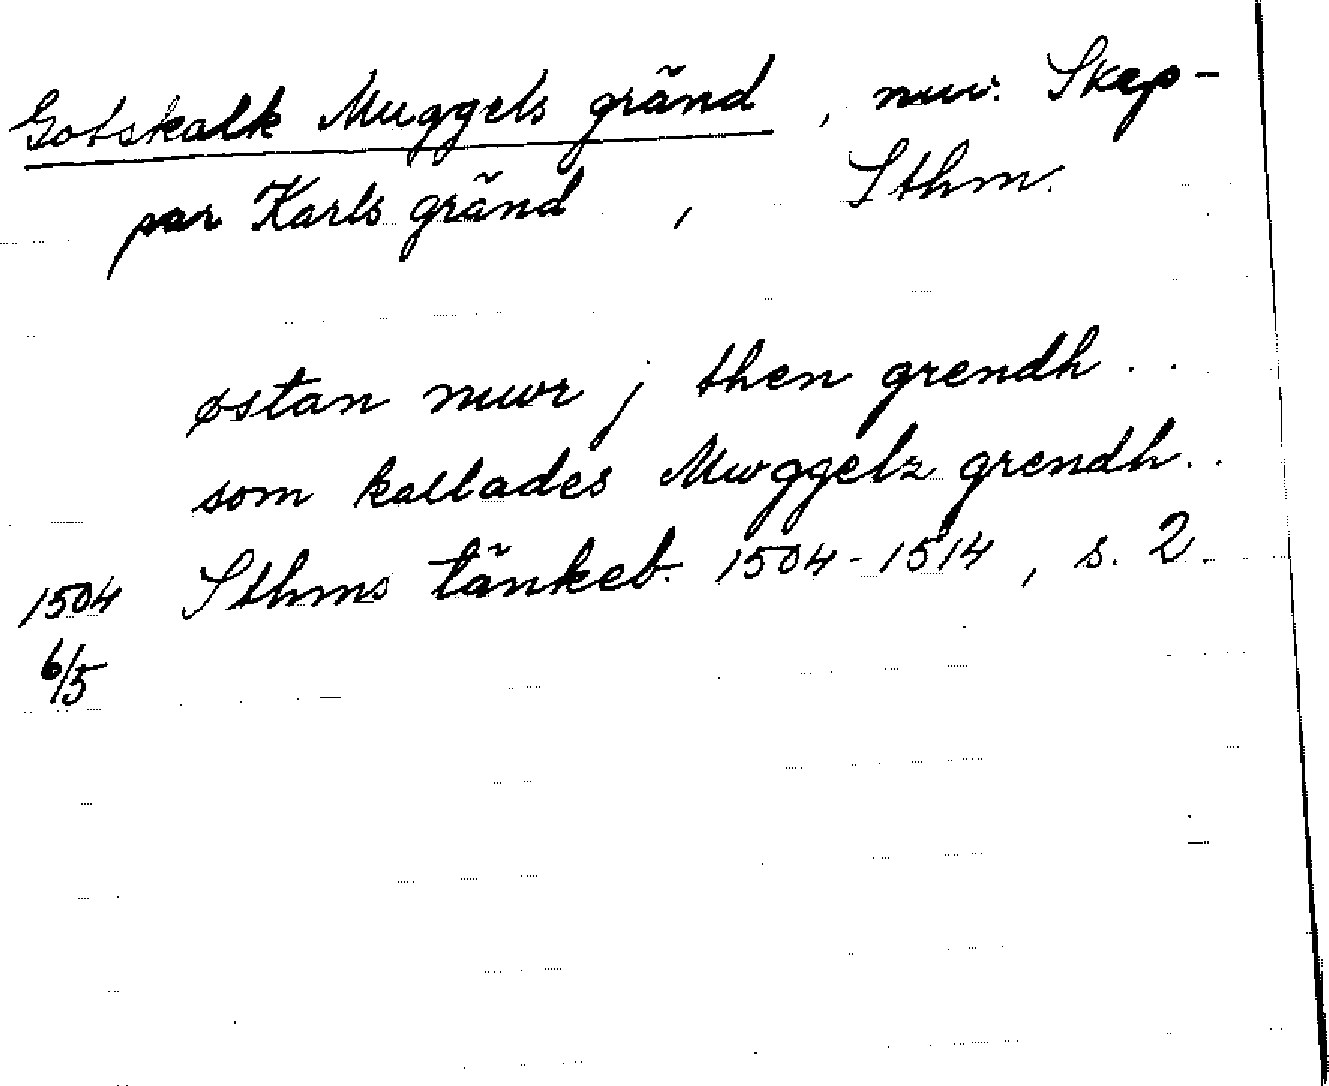 Gotskalk Muggels gränd, nuv. Skep-
par Karls gränd, Sthm.
østan mwr j then grendh . .
som kallades Mwggelz grendh . .
1504 Sthms tänkeb. 1504-1514, s. 2.
6/5